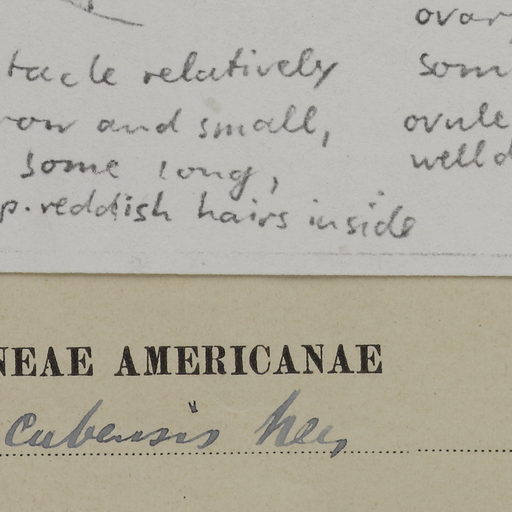 tacle relatively
row and small,
some long,
p. reddish hairs inside
ovar
som
ovule
well d
NEAE AMERICANAE
cubensis